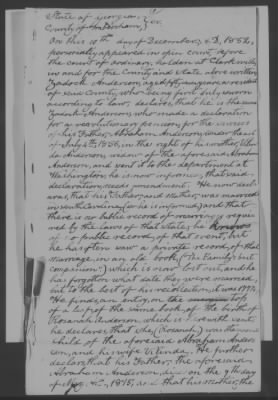 State of Georgia,
County of Habersham, } SS.
On this 10th day of December, A.D. 1852,
personally appeared in open court, before
the court of ordinary, holden at Clarkesville
in and for the County and State above written
Zadock Anderson, aged fifty years a resident
of said County, who being first duly sworn
according to law, declares, that he is the same
Zadock Anderson, who made a declaration
for a revolutionary pension for the services
of his Father, Abraham Anderson, under the act
of July 4th 1836, in the right of his mother,
Anderson, widow of the aforesaid Abraham
Anderson, and sent it to the department at
Washington; he is now informed, that said
declaration, needs amendment. He now decl-
ares, that his Father, and Mother, was married
in South Carolina, as he is informed, and that
there is no public record of marriage requir-
ed by the laws of that State; he knows
of no public record, of that event, but
he has often saw a private record, of that
marriage, in an old book, (The Family's best
companion) which is now lost out, and he
has forgotten what date they were married,
but to the best of his recollection, it was 1774.
He finds, an entry, on the top
of a leaf of the same book, of the birth of
Rosanah Anderson, which is herewith sent.
he declares, that she, (Rosanah) was the
child of the aforesaid Abraham Anders
on, and his wife He further
declares, that his Father, the aforesaid
Abraham Anderson, died on the 9th day
of A.D., 1815, and that his mother, the